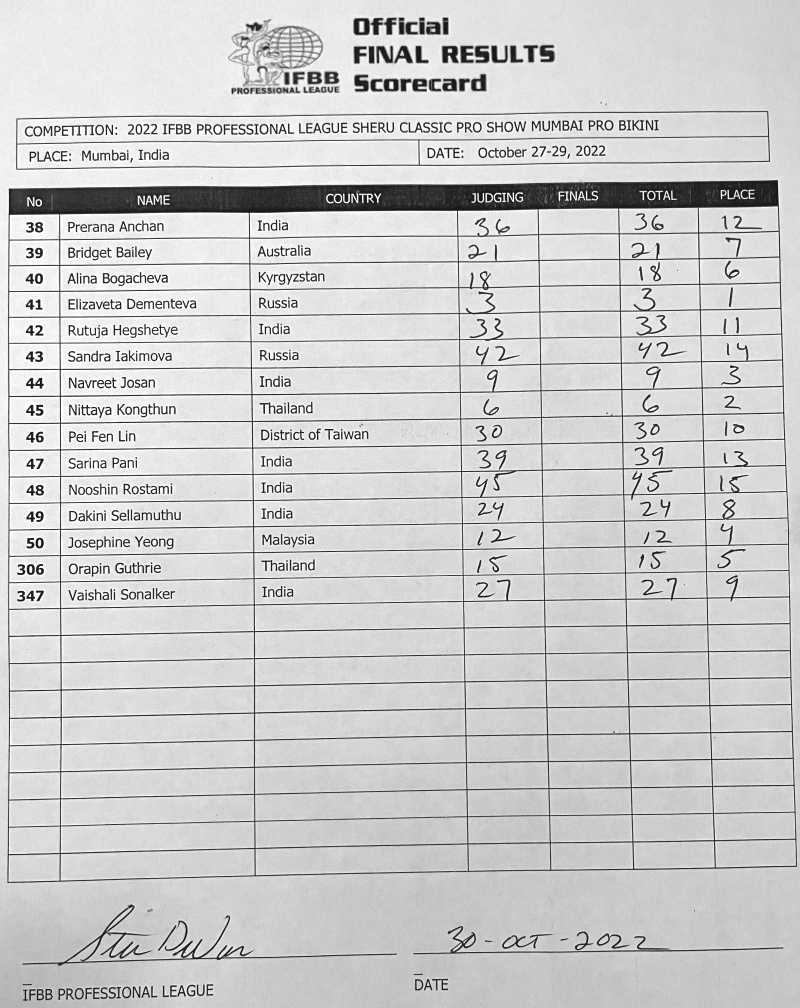 IFBB
PROFESSIONAL LEAGUE
Official
FINAL RESULTS
Scorecard
COMPETITION: 2022 IFBB PROFESSIONAL LEAGUE SHERU CLASSIC PRO SHOW MUMBAI PRO BIKINI
PLACE: Mumbai, India DATE: October 27-29, 2022
No NAME COUNTRY JUDGING FINALS TOTAL PLACE
38 Prerana Anchan India 36 36 12
39 Bridget Bailey Australia 21 21 7
40 Alina Bogacheva Kyrgyzstan 18 18 6
41 Elizaveta Dementeva Russia 3 3 1
42 Rutuja Hegshetye India 33 33 11
43 Sandra Iakimova Russia 42 42 14
44 Navreet Josan India 9 9 3
45 Nittaya Kongthun Thailand 6 6 2
46 Pei Fen Lin District of Taiwan 30 30 10
47 Sarina Pani India 39 39 13
48 Nooshin Rostami India 45 45 15
49 Dakini Sellamuthu India 24 24 8
50 Josephine Yeong Malaysia 12 12 4
306 Orapin Guthrie Thailand 15 15 5
347 Vaishali Sonalker India 27 27 9
30-OCT-2022
IFBB PROFESSIONAL LEAGUE DATE